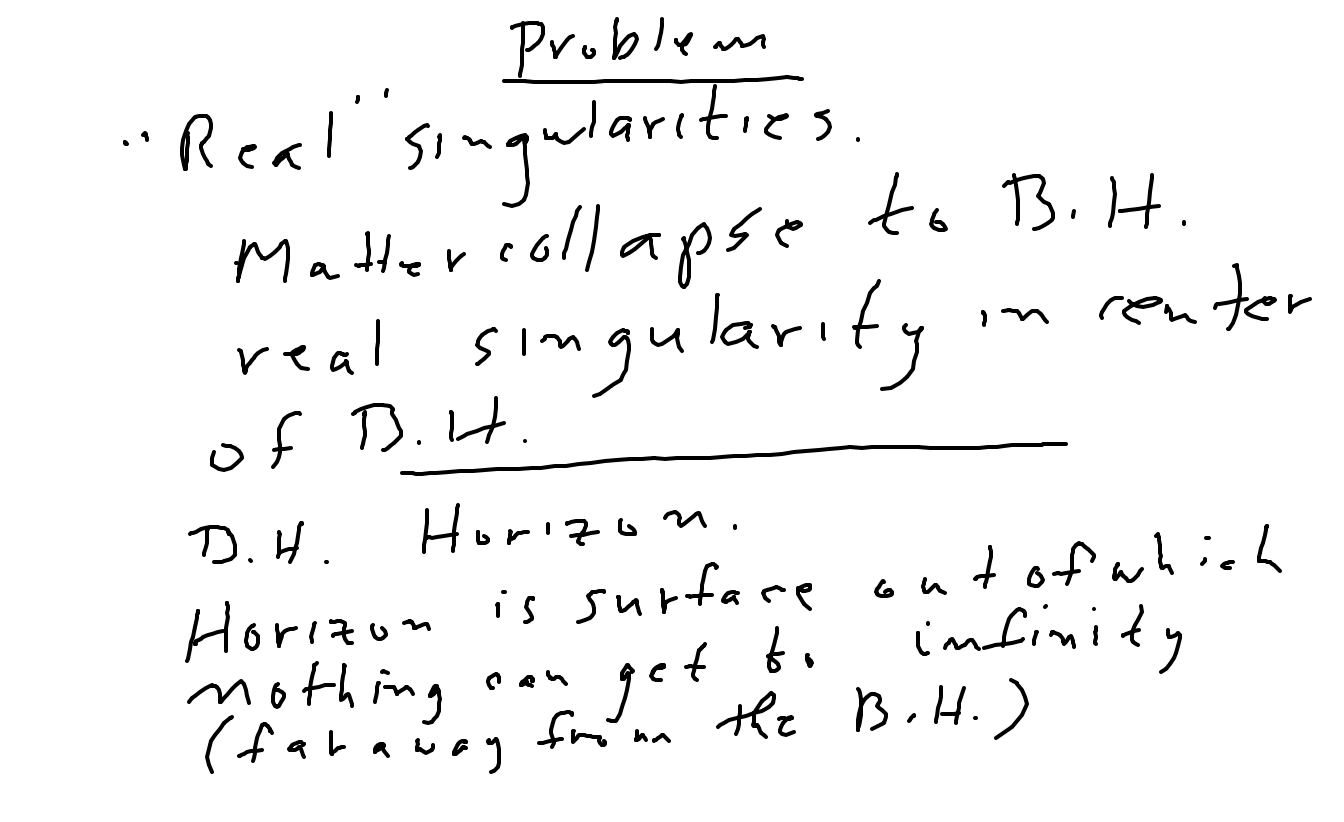 Problem
"Real" singularities.
Matter collapse to B.H.
real singularity in center
of B.H.
B.H. Horizon.
Horizon is surface out of which
nothing can get to infinity
(far away from the B.H.)